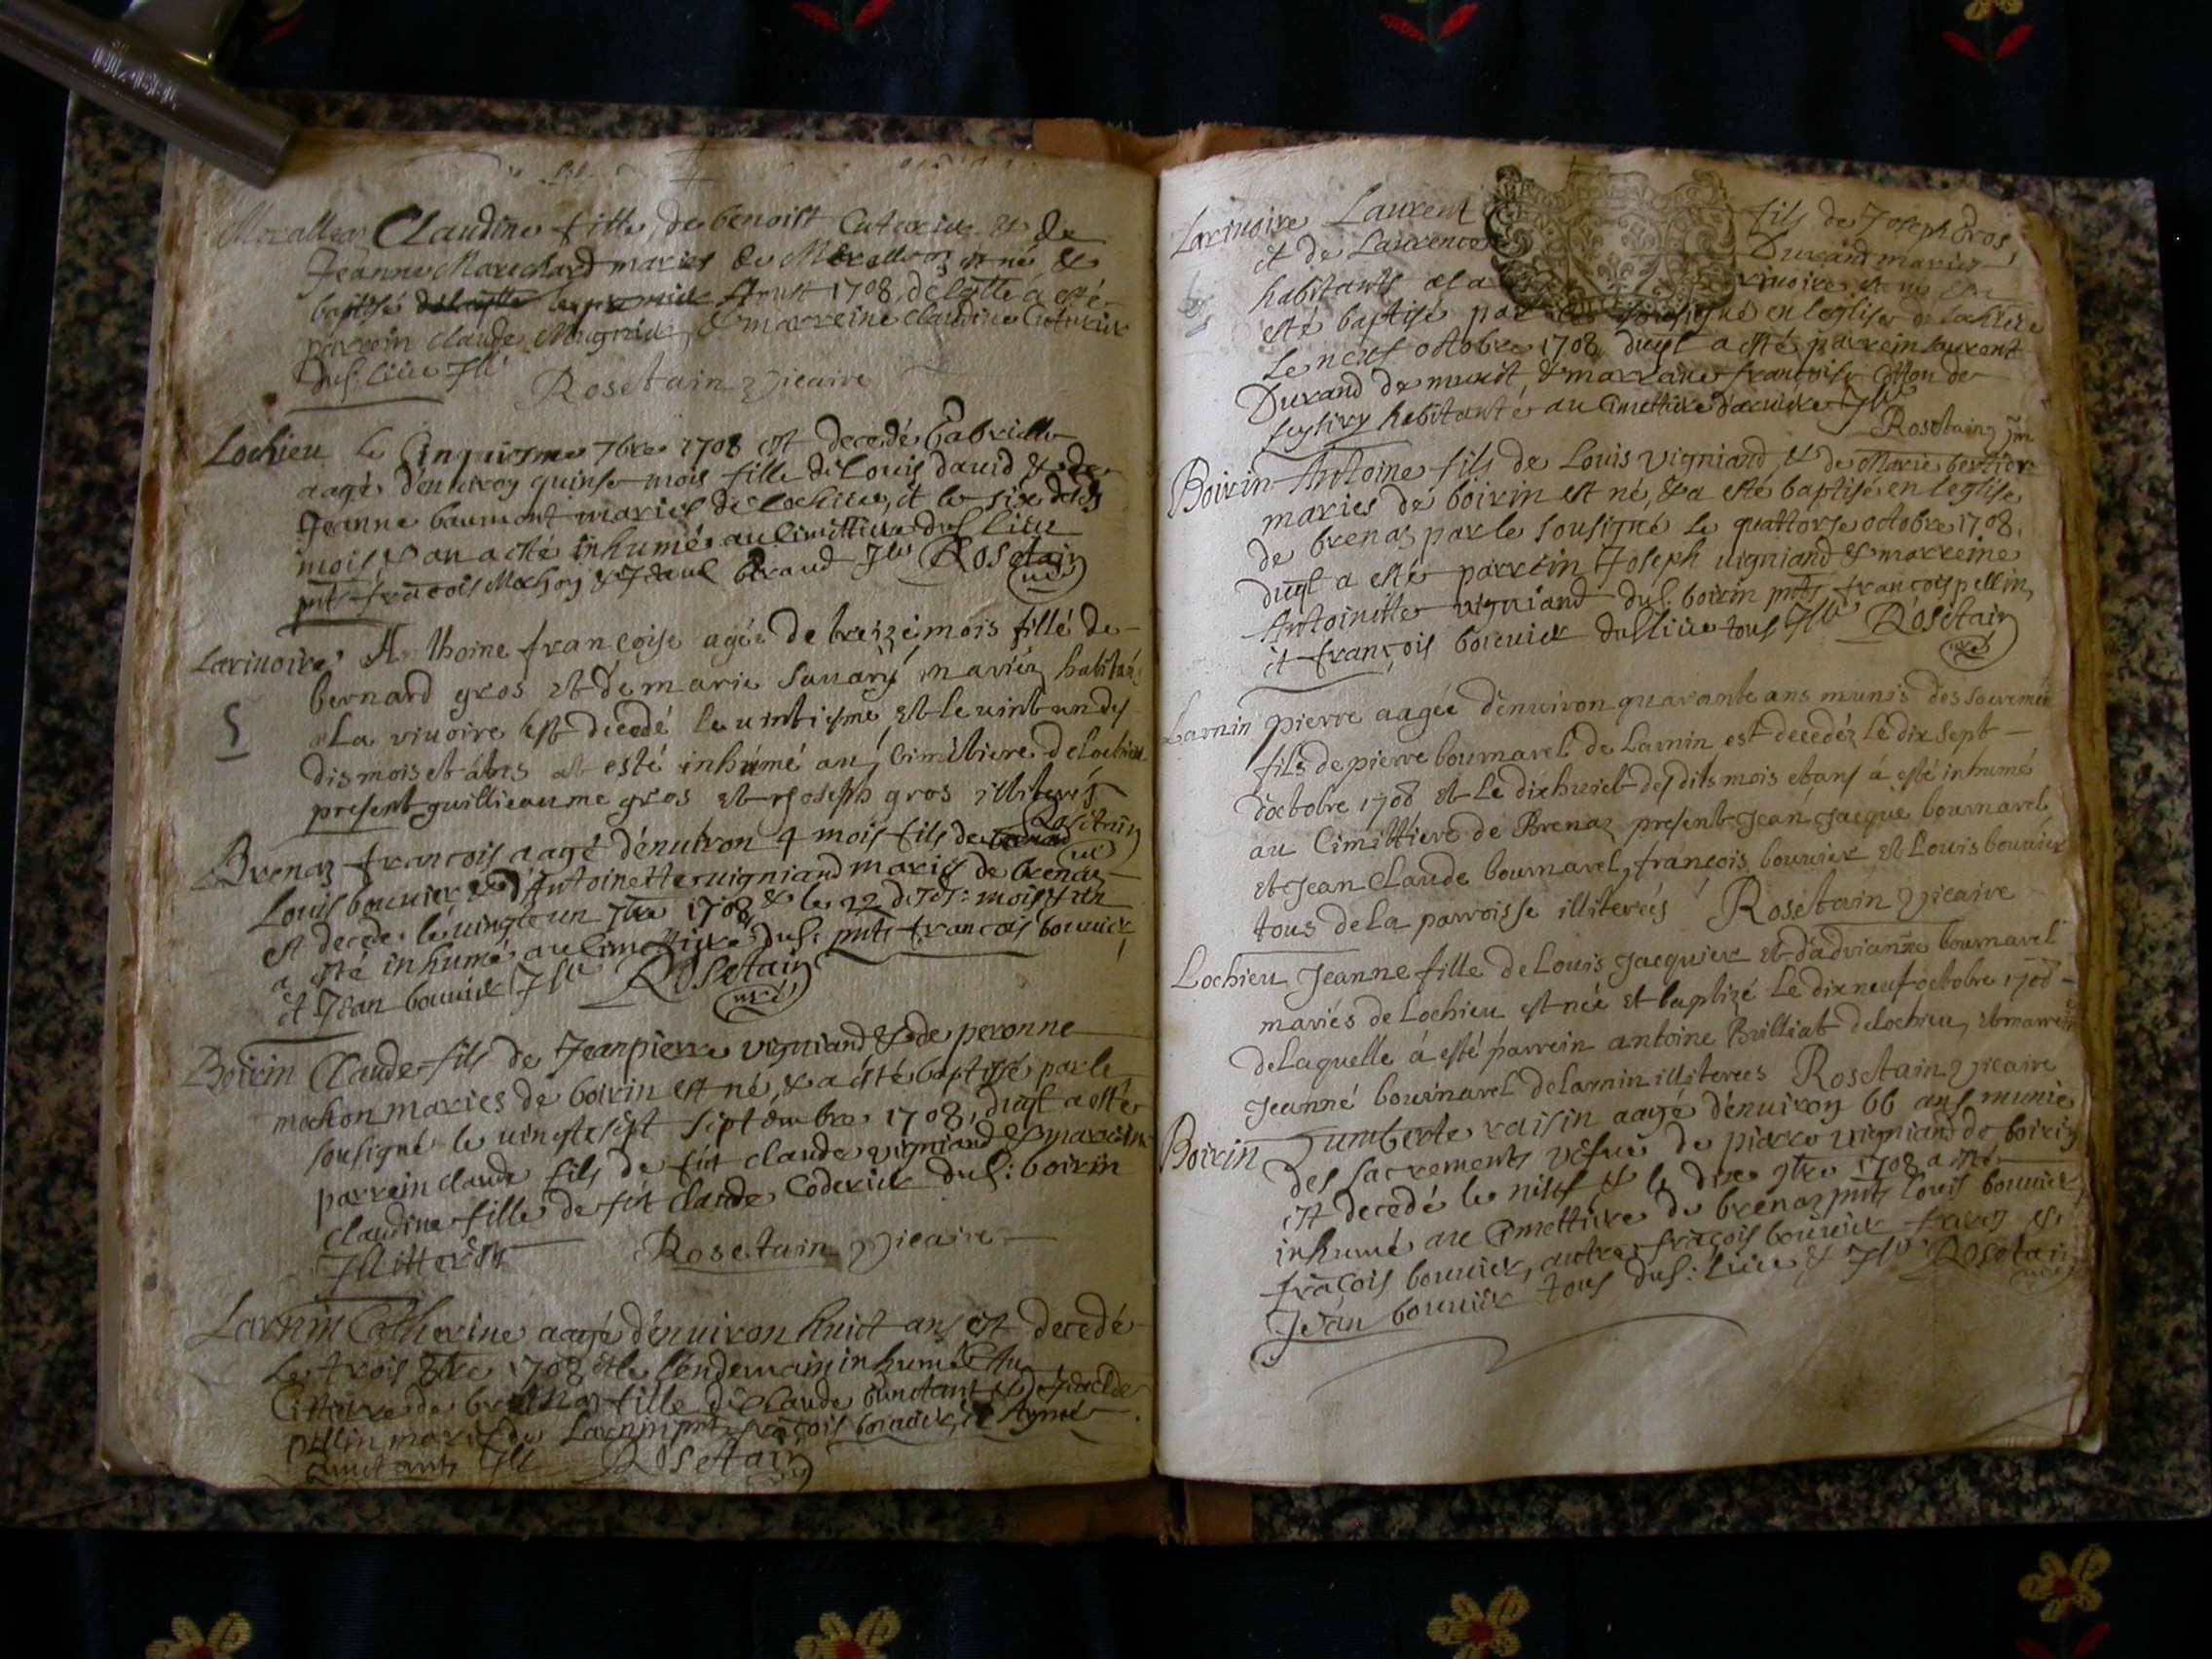 Claudine fille de benoist et de
Jeanne Marechard maries de est né &
baptisé le premier Aoust 1708, de lqlle a esté
parrein claude Mugnier, & marreine claudine
dud: lieu Ill
Rosetain vicaire
Lochieu Le Cinquiesme 7bre 1708 est decedé Gabrielle
aagé d'enuiron quinse mois fille de Louis dauid & de
Jeanne baumont maries de lochieu, et le six desd
mois & an a esté inhumé au Cimettiere dud lieu
pnts françois Mochon & beraud Ill Rosetain
vicr̃e
Lauiuoire Anthoine françoise agée de treize mois fille de
bernard gros et de marie sauary mariéz habitan
a La viuoire est decedé le uintiesme et le uint un des
dis mois et ans at esté inhúmé au cimitiere de lochieu
present guillieaume gros et joseph gros illiterés
Rosetain
Brenaz françois aagé d'enuiron 4 mois fils de
Louis bouuier & d'Antoinette uigniand maries de brenaz
est decedé le uingt un 7bre 1708 & le 22 desd: mois & an
a esté inhumé au Cimettiere dud: pnts francois bouuier
et Jean bouuier Ill Rosetain
Boirin Claude fils de Jeanpierre vigniand & de peronne
mochon maries de boirin est né, & a esté baptisé par le
sousigné le uingt e sept septembre 1708, duql a esté
parrein claude fils de fût claude vigniand & marreine
claudine fille de fût claude Coderier dud: boirin
Illitterés Rosetain vicaire
Larnin Catherine aagé d'enuiron huict ans est decedé
Le trois 8bre 1708 et le lendemain inhumé au
Cimittiere de brenaz fille de claude &
pellin maries de Larnin pnts françois bouuier, et Aymé
Ill Rosetain
Lauiuoire Laurent fils de Joseph Gros
et de Laurence Durand maries
habitants a la viuoire est né
esté baptisé par le sousigné en leglise de
Le neuf octobre 1708, duql a esté parrein laurent
Durand de & marraine françoise de
habitante au Ill
Rosetain
Boirin Antoine fils de Louis vigniand & de Marie bertier
maries dé boirin est né, & a esté baptisé en leglise
de brenaz par le sousigné le quattorse octobre 1708,
duql a esté parrein Joseph uigniand & marreine
Antoinette vigniand dud. boirin pnts françois pellin,
et françois bouuier dud lieu tous Ill Rosetain
Larnin pierre aagée d'enuiron quarante ans munis des sacremens
fils de pierre bournarel de Larnin est decedéz le dix sept
d'octobre 1708 et le dixhuict des dits mois et ans á esté inhumé
au Cimittiere de Brenaz present jean jacque bournarel
et jean Claude bournarel, françois bouuier et Louis bouuier
tous de la parroisse illiterés Rosetain vicaire
Lochieu Jeanne fille de Louis jacquier et d'adrianne bournarel
mariés de Lochieu est née et baptizé le dix neuf octobre 1708
de Laquelle á esté parrein antoine Brilliat de lochieu, et marreine
jeanne bournarel de larnin illiterees Rosetain vicaire
Boirin Humberte raisin aagé d'enuiron 66 ans munie
des sacrements vefue de pierre vigniand de boirin
est decedé le neuf & le dix 9bre 1708 a esté
inhumé au Cimettiere de brenaz pnts louis bouuier
françois bouuier, autre françois bouuier
Jean bouuier tous dud: lieu & Ill Rosetain